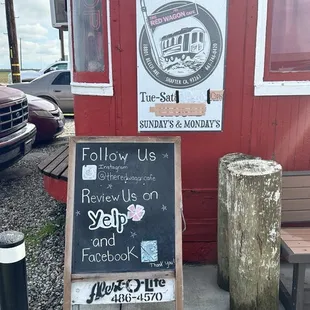 The RED WAGON CAFE
Tue-Sat
CLOSED
SUNDAY'S & MONDAYS
Follow Us
Instagram
@theredwagoncafe
Review us on
yelp
and
Facebook
Thank you
Alert-O-Lite
486-4570